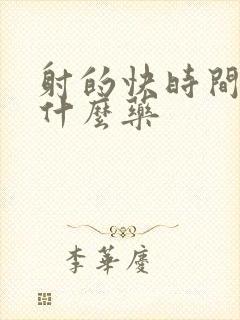 射的快時間
什麼藥
李華慶